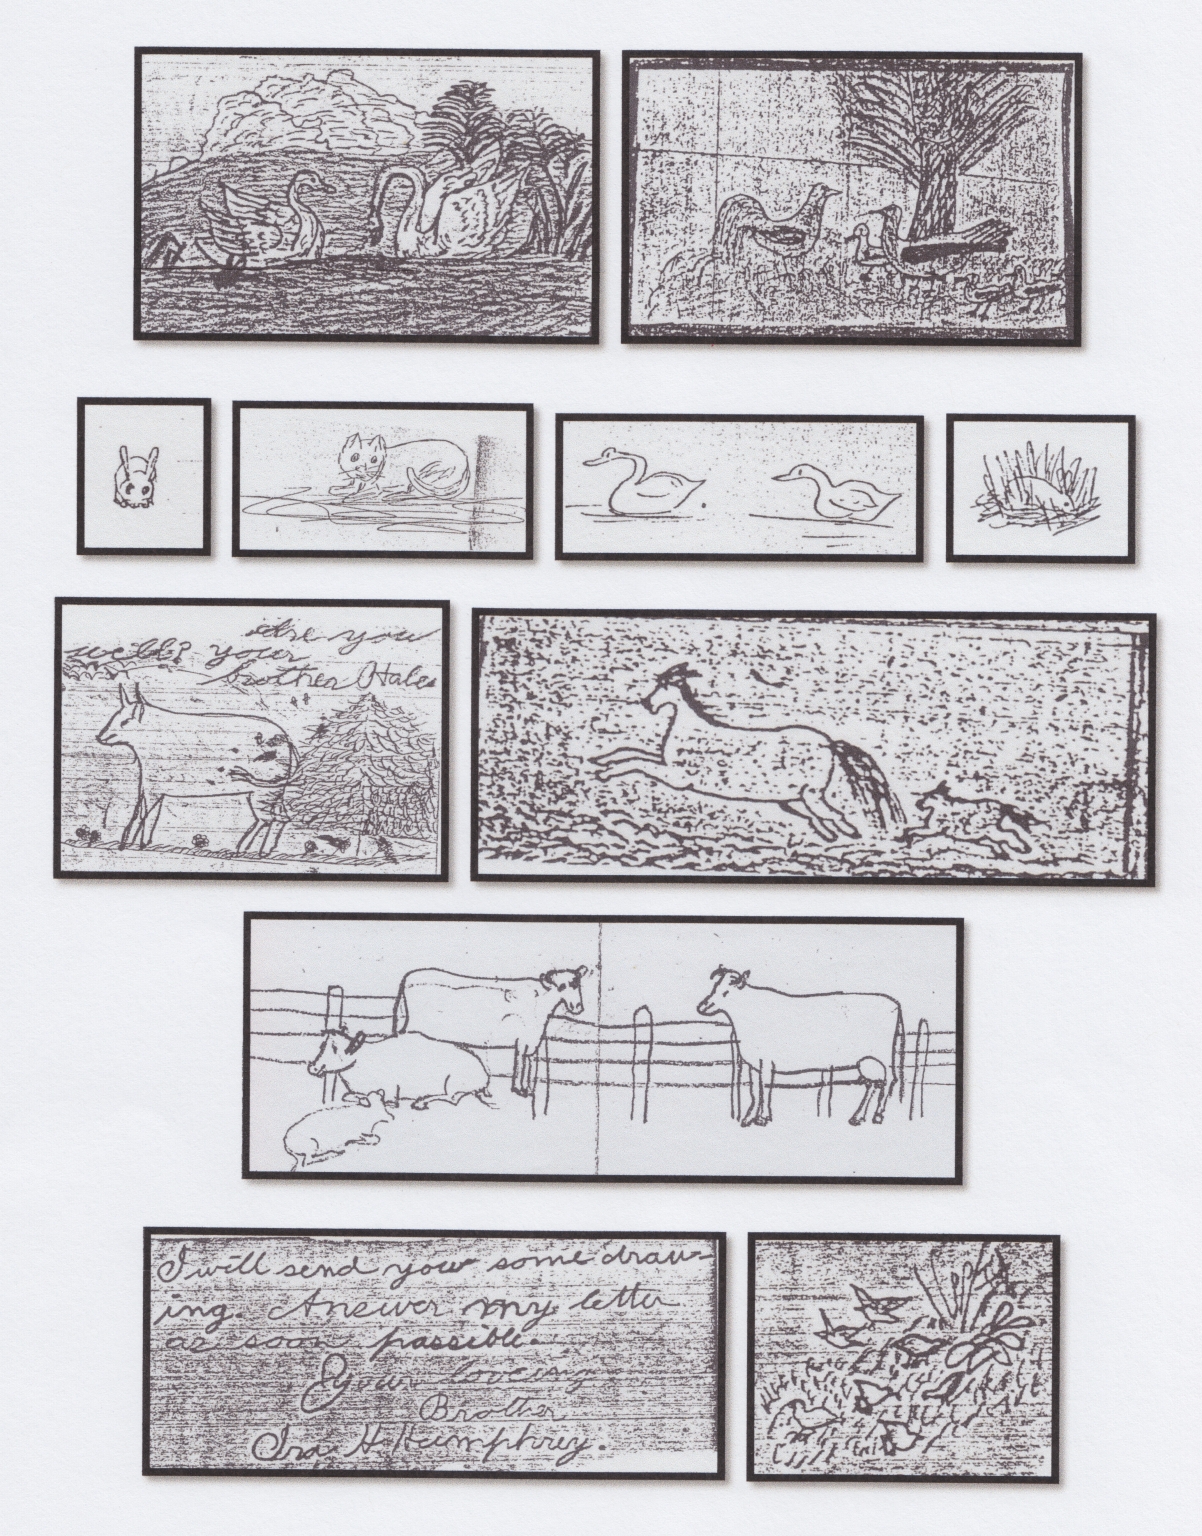 Are you
well? your
brother Hale
I will send you some draw-
ing. Answer my letter
as soon passible.
Your loveing
Brother
Ira H Humphrey.